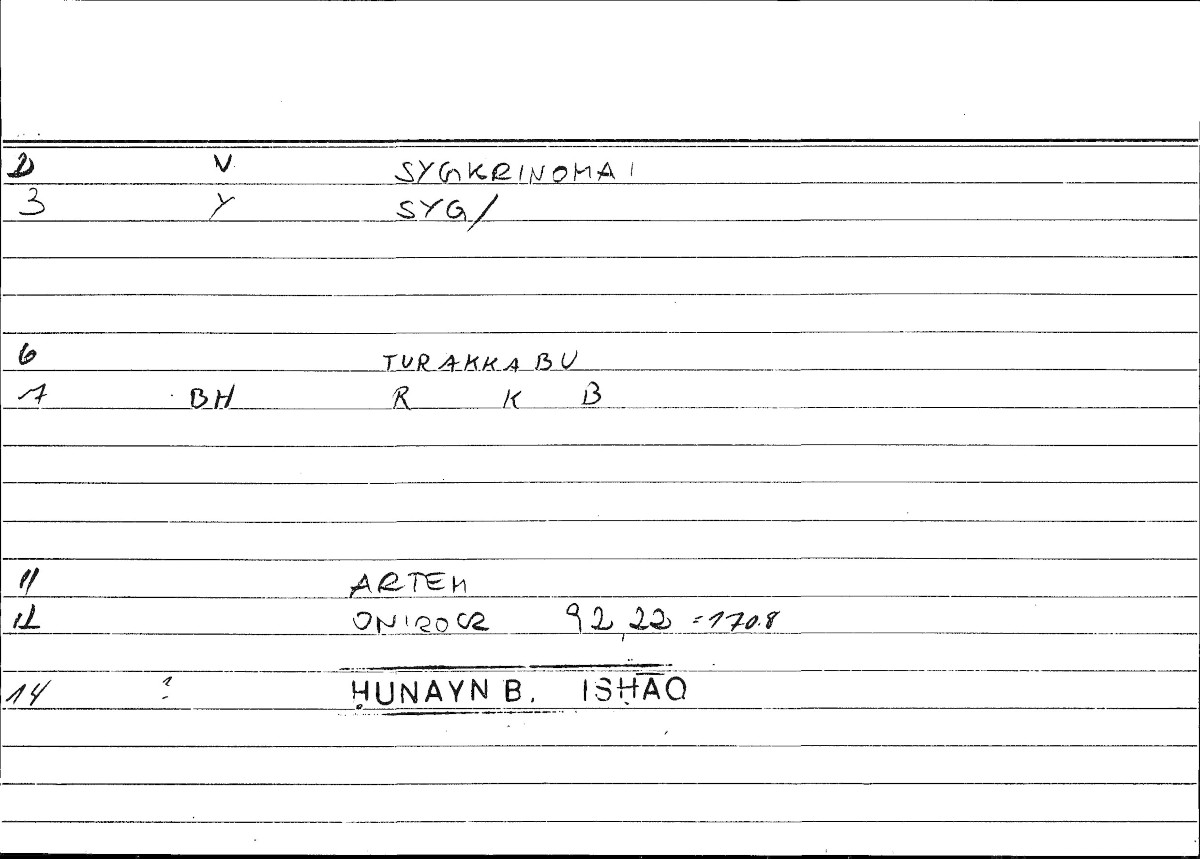 2 V SYGKRINOMAI
3 Y SYG/
6 TURAKKABU
7 BH R K B
11 ARTEM
12 ONIROCR 92,22 =170.8
14 ? ḤUNAYN B. ISḤĀQ